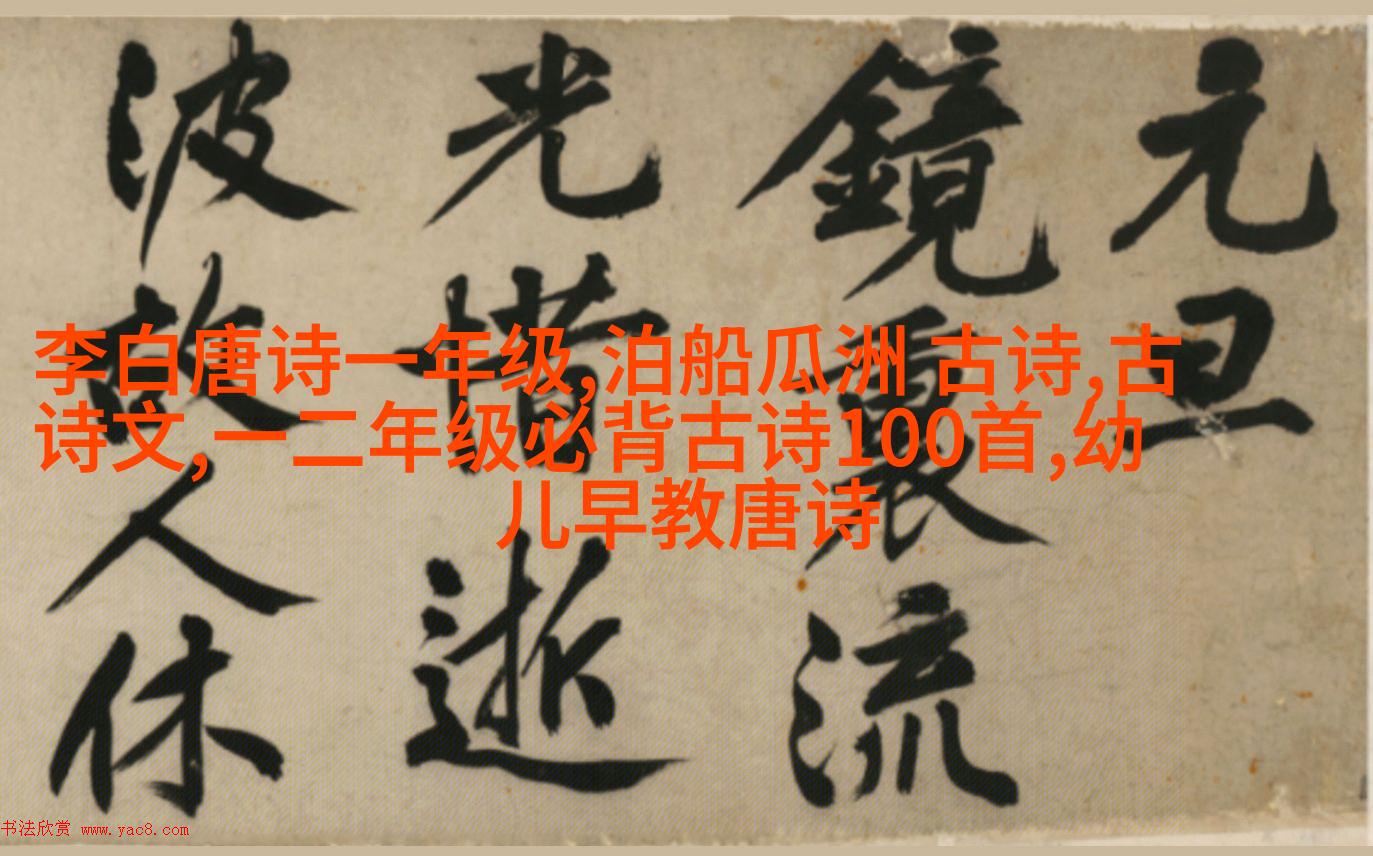 元旦
鏡裏流
光惜逝
波故人休
李白唐诗一年级,泊船瓜洲 古诗,古
诗文,一二年级必背古诗100首,幼
儿早教唐诗
书法欣赏 www.yac8.com